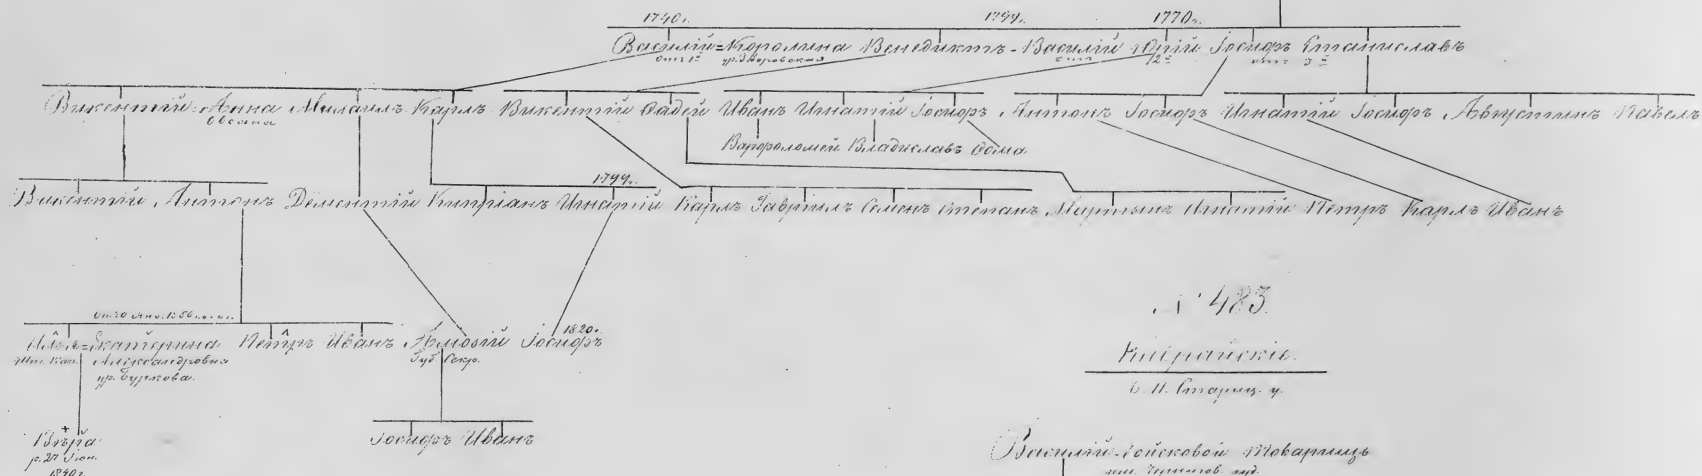 1740г. 1799г. 1770г.
Василій=Каролина Венедиктъ-Василій Юрій Іосифъ Станиславъ
отъ 1º 2º отъ 3º
Викентій=Анна Михаилъ Карлъ Викентій Фадей Иванъ Игнатій Іосифъ Антонъ Іосифъ Игнатій Іосифъ Августинъ Павелъ
Варфоломей Владиславъ Ѳома
1799г.
Викентій Антонъ Дементій Кипріанъ Игнатій Карлъ Гавріилъ Семенъ Степанъ Мартынъ Игнатій Петръ Карлъ Иванъ
Екатерина Петръ Иванъ Амвозій Іосифъ 1820г.
Шт. Кап. Александровна Губ. Секр.
ур. Буркова.
Вѣра
р. 27 Іюн.
1840г.
Іосифъ Иванъ
№ 483.
Старицк. у.
Василій Войсковой Товарищъ